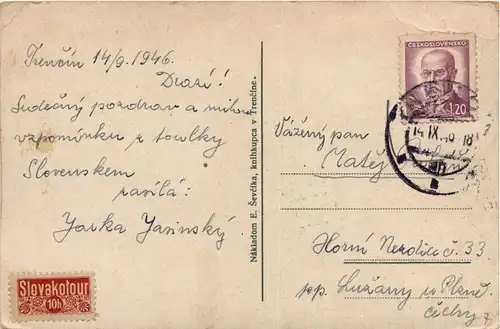 Trenčín 14/9. 1946.
Drazí!
Srdečný pozdrav a milou
vzpomínku z toulky
Slovenskem
zasílá:
Jarka Jasinský
Slovakotour
10h
Nákladom E. Ševčíka, kníhkupca v Trenčíne.
ČESKOSLOVENSKO
1.20
14.IX.
18
Vážený pan
Matěj
Horní Nezdice č. 33
pp. Lužany u Plzně.
Čechy